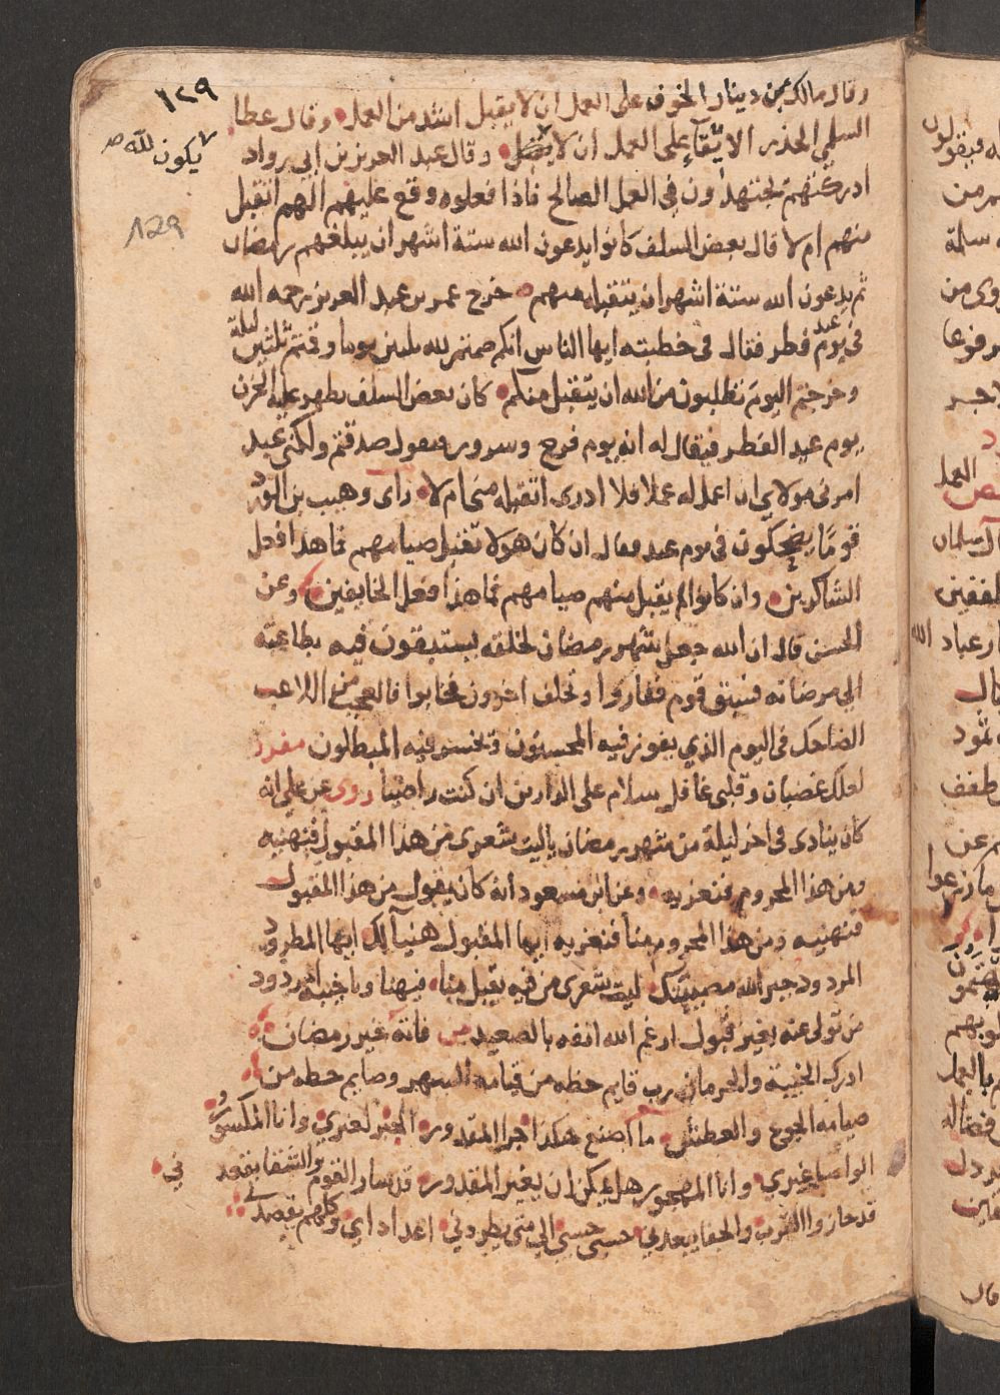 ١٢٩
لا يكون لله
129
وقال مالك بن دينار الخوف على العمل ان لا يقبل اشد من العمل وقال عطا
السلمي الحذر الاتقاء على العمل ان لا وقال عبد العزيز بن ابي رواد
ادركتهم يجتهدون في العمل الصالح فاذا فعلوه وقع عليهم الهم اتقبل
منهم ام لا قال بعض السلف كانوا يدعون الله ستة اشهر ان يبلغهم رمضان
ثم يدعون الله ستة اشهر ان يتقبله منهم خرج عمر بن عبد العزيز رحمه الله
في يوم عيد فطر فقال في خطبته ايها الناس انكم صمتم لله ثلثين يوما وقمتم ثلثين ليلة
وخرجتم اليوم تطلبون من الله ان يتقبل منكم كان بعض السلف يظهر عليه الحزن
يوم عيد الفطر فيقال له انه يوم فرح وسرور فيقول صدقتم ولكني عبد
امرني مولاي ان اعمل له عملا فلا ادري اتقبله مني ام لا راى وهيب بن الورد
قوما يضحكون في يوم عيد فقال ان كان هولا تقبل صيامهم فما هذا فعل
الشاكرين وان كانوا لم يقبل منهم صيامهم فما هذا فعل الخايفين وعن
الحسن قال ان الله جعل شهر رمضان لخلقه يستبقون فيه بطاعته
الى مرضاته فسبق قوم ففازوا وتخلف اخرون فخابوا فالعجب من اللاعب
الضاحك في اليوم الذي يفوز فيه المحسنون ويخسر فيه المبطلون مفرد
لعلك غضبان وقلبي غافل سلام على الدارين ان كنت راضيا روى عن علي انه
كان ينادي في اخر ليلة من شهر رمضان ياليت شعري من هذا المقبول فنهنيه
ومن هذا المحروم فنعزيه وعن ابن مسعود انه كان يقول من هذا المقبول
فنهنيه ومن هذا المحروم منا فنعزيه ايها المقبول هنيأ لك ايها المطرود
المردود جبر الله مصيبتك ليت شعري من فيه يقبل منا فيهنا ويا خيبة المردود
من تولى عنه بغير قبول ارغم الله انفه بالصعيد فانه غير رمضان
ادرك الخيبة والحرمان رب قايم حظه من قيامه السهر وصايم حظه من
صيامه الجوع والعطش ما اصنع هكذا جرا المقدور الجبر لغيري وانا المكسور
الواصل غيري وانا المهجور هل يمكن ان يغير المقدور قد سار القوم والشقا يقعد ني
قد حازوا القرب والجفا يبعدني حسبي حسبي الى متى يطردني اعداداي وكلهم يقصدني